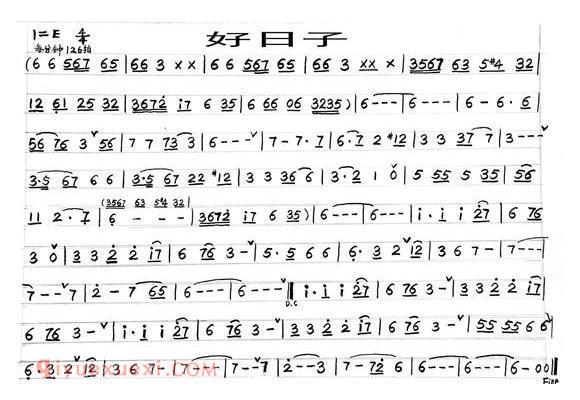 1=E 4/4
每分钟126拍
好日子
(6 6 567 65 | 66 3 x x | 6 6 567 65 | 66 3 xx x | 3567 63 5#4 32 |
12 61 25 32 | 3672 17 6 35 | 6 66 06 3235) | 6--- | 6--- | 6-6·6 |
56 76 3ˇ56 | 7 7 73 3 | 6---ˇ | 7-7·7 | 6·7 2 #12 | 3 3 37 7 | 3---ˇ |
3·5 67 6 6 | 3·5 67 22 #12 | 3 3 36 6 | 3·2 1 0ˇ | 5 55 5 35 | 56
(3567 63 5#4 32 |
11 2·7 | 6 - - - | 3672 17 6 35) | 6--- | 6--- | i·i i 27 | 6 76
3 0ˇ | 3 3 2 2 17 | 6 76 3-ˇ | 5·5 6 6 | 6·3 2ˇ12 | 3 6 7- | 7---
7--ˇ7 | 2-7 65 | 6--- | 6---ˇ ‖ i·i i 27 | 6 76 3-ˇ | 3 3 2 2 17 |
D.C
6 76 3-ˇ | i·i i 27 | 6 76 3-ˇ | 3 3 2 2 17 | 6 76 3-ˇ | 55 55 6 6ˇ
6·3 2ˇ12 | 3 6 7- | 7--- | 7--ˇ7 | 2--3 | 7-72 6 | 6--- | 6--- | 6-00 ‖
Fine
qiyuexuexi.com